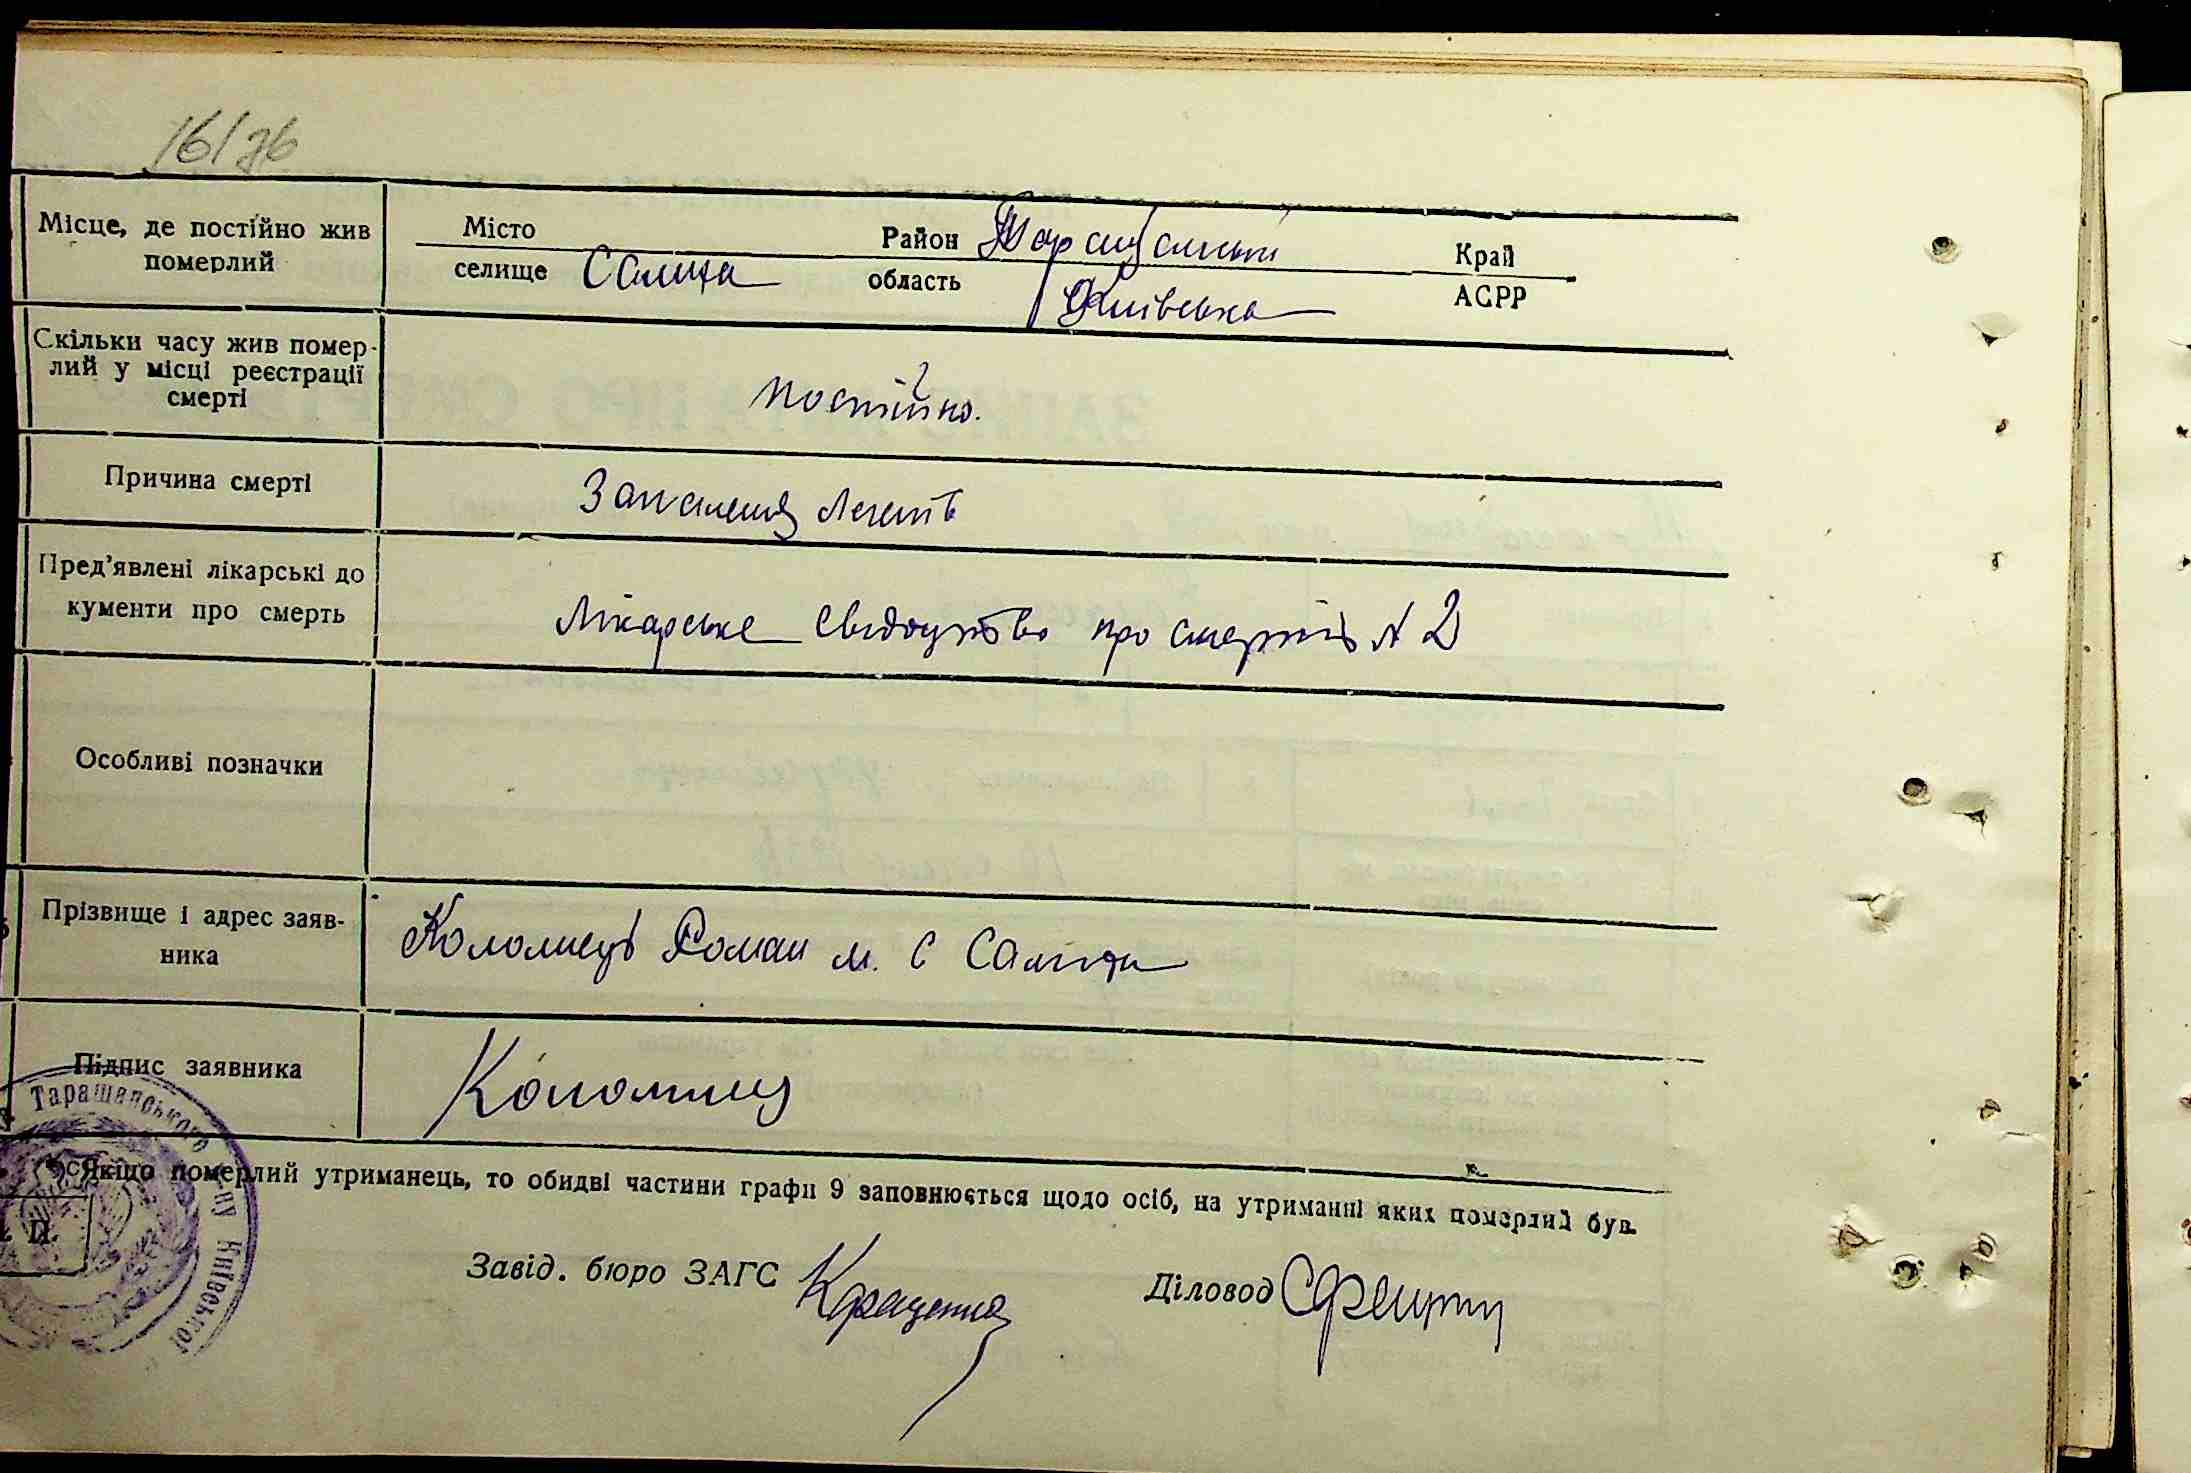 16/76
Місце, де постійно жив
померлий
Місто
селище Салиха
Район Таращанський
область Київська
Край
АСРР
Скільки часу жив помер-
лий у місці реєстрації
смерті
постійно.
Причина смерті
Запалення Легенів
Пред'явлені лікарські до
кументи про смерть
Лікарське свідоцтво про смерть N 2
Особливі позначки
Прізвище і адрес заяв-
ника
Коломиець Роман м. с Салиха
Підпис заявника
Коломиец
Якщо померлий утриманець, то обидві частини графи 9 заповнюється щодо осіб, на утриманні яких померлий був.
Завід. бюро ЗАГС
Діловод
Таращанського Київської